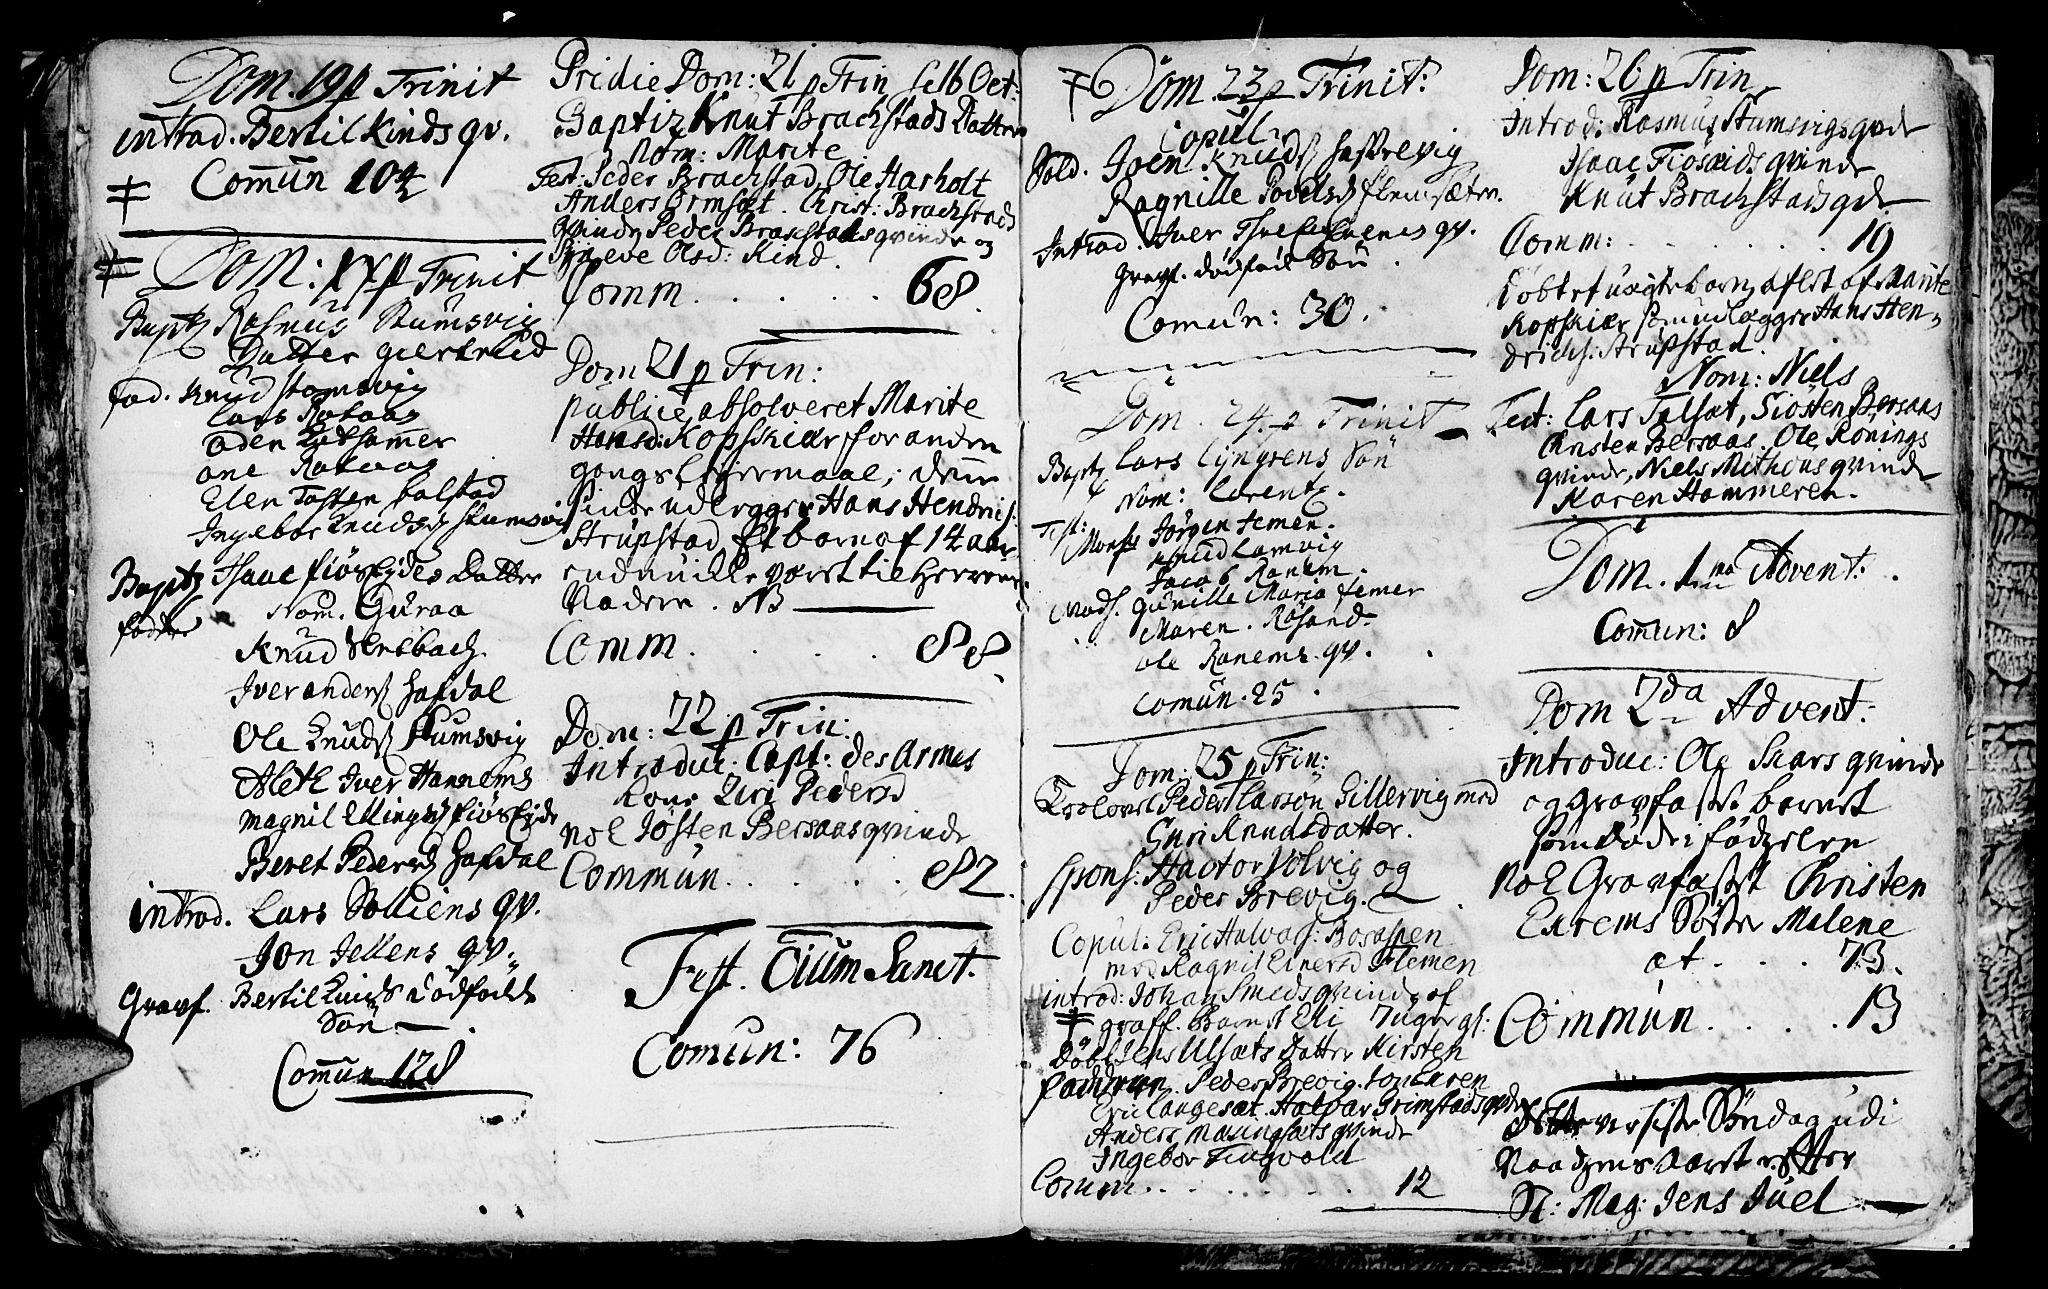 Dom. 19 p Trinit
introd. Bertil Kinds qv.
Comun 104
Dom: XX p Trinit
Bapt Rasmus Stumsvig
Datter giertrud
fad. Knud stomsvig
Lars Rokaas
oden
ane Rokaas
Elen Tosten balstad
Ingebor Knudsd stumsvig
Baptz Isaac fiørseides Datter
Nom. Guraa
fadder
Knud Ersbach
Iver anders hafdal
Ole Knuds Stumsvig
Alet Iver Hannems
magnil Ellingsd fiørseide
Beret Pedersd hafdal
introd. Lars Solliens qv.
Jon Jellens qv.
Gravf. Bertil Kinds dødfødde
Søn
Comun 128
Pridie Dom: 21 p Trin sc 16 Oct:
Baptiz Knut Brachstads Datter
Nom: Marite
Test: Peder Brachstad, Ole Harholt
Anders Ormsæt. Christ: Brachstads
qvinde Peder Brachstads qvinde og
Olsd: Kind.
Comm. . . . . . 68
Dom 21 p Trin:
publice absolveret Marite
Hansd: Kopskiær for anden
gongs leiermaal; denne
sinde udlegger Hans Hendrichs:
Strupstad Et barn af 14 aar
end ville været til Herrens
Nadere. NB
Comm. . . . . 88
Dom: 22 p Trin:
Introduc: Capt: des Armes
Kone Zíri Pedersd
nok Josten Bersaas qvinde
Commun. . . . . 82.
Fest. Oium Sanct.
Comun: 76
Dom. 23 p Trinit:
Copul
Sold. Joen Knuds hastrevig
Ragnille Povelsd flemsæter.
Introd. Iver qv.
Gravf. dødfød Søn.
Comun: 30.
Dom. 24 p Trinit
Bapt Lars Lyngrens Søn
Nom: Lorentz.
Test: Monsr Jørgen femer.
Knud Lamvig
Jacob Ranem.
Mads. gunille Maria femer
Maren Røsand.
ole Ranems qv.
Comun. 25.
Dom: 25 p Trin:
Troloved Peder Larsøn Gillervig med
Guri Knudsdatter.
Spons: Hactor Volvig og
Peder Brevig.
Copul: Eric Halvors:
med Ragnil Einersd Flemen
introd: Johan Smeds qvinde af
graff. Barnet Eli 7 uger gl:
Døbt Jens Ulsæts Datter Kirsten
faddrun. Peder Brevig. Jon Exren
Eric Langesæt. Halvar Grimstads qvinde
Anders Masingsæts qvinde
Ingebor Tingvold
Comm. . . . . . . 12
Dom: 26 p Trin
Introd: Rasmus Stumsvigs qvde
Isaac Fiosæids qvinde
Knut Brachstads qde
Comm: . . . . . . 19
Døbt et uægte barn aflet af Marite
Kopskiær som udlægger Hans Hen-
drichs: Strupstad.
Nom: Niels
Test: Lars Talsæt, Siosten Bersaas
Christen Bersaas. Ole Ronings
qvinde, Niels Mithous qvinde
Karen Hammeren.
Dom. 1ma Advent:
Comun: 8
Dom 2da Advent:
Introduc: Ole Skars qvinde
og gravfæstet barnet
som døde i fødselen
nok Gravfæstet Christen
Exrems Søster Malene
æt. . . . 73.
Commun. . . . . 13
Dette var siste Søndag udi
Naadzens aaret efter
Sl: Mag: Jens Juel